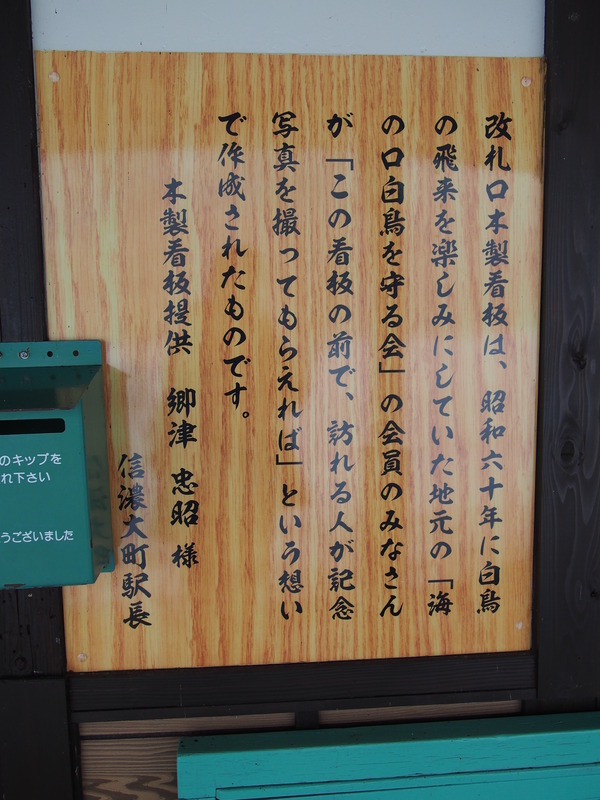 改札口木製看板は、昭和六十年に白鳥
の飛来を楽しみにしていた地元の「海
の口白鳥を守る会」の会員のみなさん
が「この看板の前で、訪れる人が記念
写真を撮ってもらえれば」という想い
で作成されたものです。
木製看板提供 郷津 忠昭 様
信濃大町駅長
のキップを
れ下さい
うございました